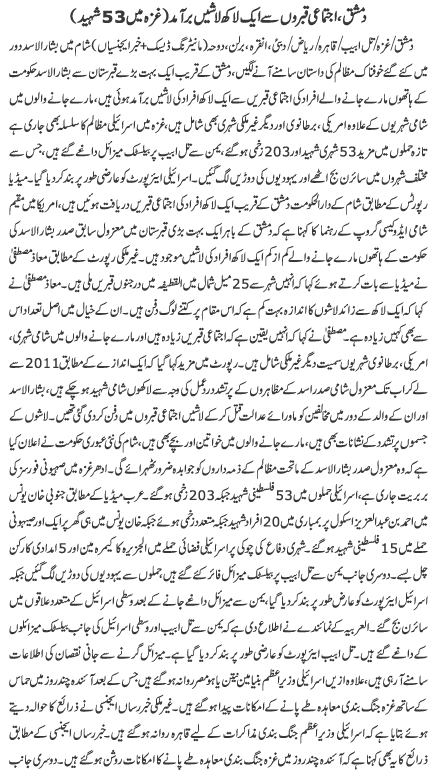 دمشق، اجتماعی قبروں سے ایک لاکھ لاشیں برآمد (غزہ میں 53 شہید)
دمشق/غزہ/تل ابیب/قاہرہ/ریاض/دبئی، انقرہ، برلن، دوحہ (مانیٹرنگ ڈیسک+خبر ایجنسیاں) شام میں بشار الاسد دور
میں کئے گئے خوفناک مظالم کی داستان سامنے آنے لگیں، دمشق کے قریب ایک بہت بڑے قبرستان سے بشار الاسد حکومت
کے ہاتھوں مارے جانے والے افراد کی اجتماعی قبریں سے ایک لاکھ افراد کی لاشیں برآمد ہوئی ہیں، مارے جانے والوں میں
شامی شہریوں کے علاوہ امریکی، برطانوی اور دیگر غیر ملکی شہری بھی شامل ہیں، غزہ میں اسرائیلی مظالم کا سلسلہ بھی جاری ہے
تازہ حملوں میں مزید 53 شہری شہید اور 203 زخمی ہو گئے، یمن سے تل ابیب پر بیلسٹک میزائل داغے گئے ہیں، جس سے
مختلف شہروں میں سائرن بج اٹھے اور یہودیوں کی دوڑیں لگ گئیں۔ اسرائیلی ایئرپورٹ کو عارضی طور پر بند کر دیا گیا۔ میڈیا
رپورٹس کے مطابق شام کے دارالحکومت دمشق کے قریب ایک لاکھ افراد کی اجتماعی قبریں دریافت ہوئیں ہیں، امریکا میں مقیم
شامی ایڈووکیسی گروپ کے رہنما کا کہنا ہے کہ دمشق کے باہر ایک بہت بڑی قبرستان میں معزول سابق صدر بشار الاسد
حکومت کے ہاتھوں مارے جانے والے کم از کم ایک لاکھ افراد کی لاشیں موجود ہیں۔ غیر ملکی رپورٹ کے مطابق معاذ مصطفیٰ
نے میڈیا سے بات کرتے ہوئے کہا کہ انہیں شہر سے 25 میل شمال میں القطیفہ میں درجنوں قبریں ملی ہیں۔ معاذ مصطفیٰ نے
کہا کہ ایک لاکھ سے زائد لاشوں کا اندازہ بہت کم ہے کہ اس مقام پر کتنے لوگ دفن ہیں۔ ان کے خیال میں اصل تعداد اس
سے بھی کہیں زیادہ ہے۔ مصطفیٰ نے کہا کہ انہیں یقین ہے کہ اجتماعی قبریں زیادہ ہیں اور مارے جانے والوں میں شامی شہری،
امریکی، برطانوی شہریوں سمیت دیگر غیر ملکی شامل ہیں۔ رپورٹ میں مزید کہا گیا کہ ایک اندازے کے مطابق 2011 سے
لے کر اب تک معزول شامی صدر اسد کے مظاہروں کے پر تشدد ردعمل کی وجہ سے لاکھوں شامی شہید ہو چکے ہیں، بشار الاسد
اور ان کے والد کے دور میں مخالفین کو ماورائے عدالت قتل کر کے لاشیں اجتماعی قبروں میں دفن کر دی گئی تھیں۔ لاشوں کے
جسموں پر تشدد کے نشانات بھی ہیں، مارے جانے والوں میں خواتین اور بچے بھی ہیں، شام کی نئی عبوری حکومت نے اعلان کیا
ہے کہ وہ معزول صدر بشار الاسد کے ماتحت مظالم کے ذمہ داروں کو جوابدہ ضرور ٹھہرائے گی۔ ادھر غزہ میں صہیونی فورسز کی
بربریت جاری ہے، اسرائیلی حملوں میں 53 فلسطینی شہید جبکہ 203 زخمی ہو گئے۔ عرب میڈیا کے مطابق جنوبی خان یونس
میں احمد بن عبدالعزیز اسکول پر بمباری میں 20 افراد شہید جبکہ متعدد زخمی ہوئے جبکہ خان یونس میں ہی گھر پر ایک اور صیہونی
حملے میں 15 فلسطینی شہید ہو گئے۔ شہری دفاع کی چوکی پر اسرائیلی فضائی حملے میں الجزیرہ کا کیمرہ مین اور 5 امدادی کارکن
چل بسے۔ دوسری جانب یمن سے تل ابیب پر بیلسٹک میزائل فائر کئے گئے ہیں، جملوں سے یہودیوں کی دوڑیں لگ گئیں جبکہ
اسرائیل ایئرپورٹ کو عارض طور پر بند کر دیا گیا، یمن سے اسرائیل پر میزائل داغے جانے کے بعد وسطی اسرائیل کے متعدد علاقوں میں
سائرن بج گئے ہیں۔ العربیہ کے نمائندے نے اطلاع دی ہے کہ یمن سے تل ابیب اور وسطی اسرائیل کی جانب بیلسٹک میزائلوں
کے داغے گئے ہیں۔ تل ابیب ایئرپورٹ کو عارضی طور پر بند کر دیا گیا ہے۔ میزائل گرنے سے جانی نقصان کی اطلاعات
سامنے آ رہی ہیں، علاوہ ازیں اسرائیلی وزیر اعظم بنیامین نیتن یاہو مصر روانہ ہو گئے ہیں جس کے بعد آئندہ چند روز میں حماس
کے ساتھ غزہ جنگ بندی معاہدہ طے پانے کے امکانات پیدا ہو گئے ہیں۔ غیر ملکی خبر رساں ایجنسی نے ذرائع کا حوالہ دیتے
ہوئے بتایا ہے کہ اسرائیلی وزیر اعظم جنگ بندی مذاکرات کے لیے قاہرہ روانہ ہو گئے ہیں۔ خبر رساں ایجنسی کے مطابق
ذرائع کا یہ بھی کہنا ہے کہ آئندہ چند روز میں غزہ جنگ بندی معاہدہ طے پانے کا امکانات روشن ہو گئے ہیں۔ دوسری جانب